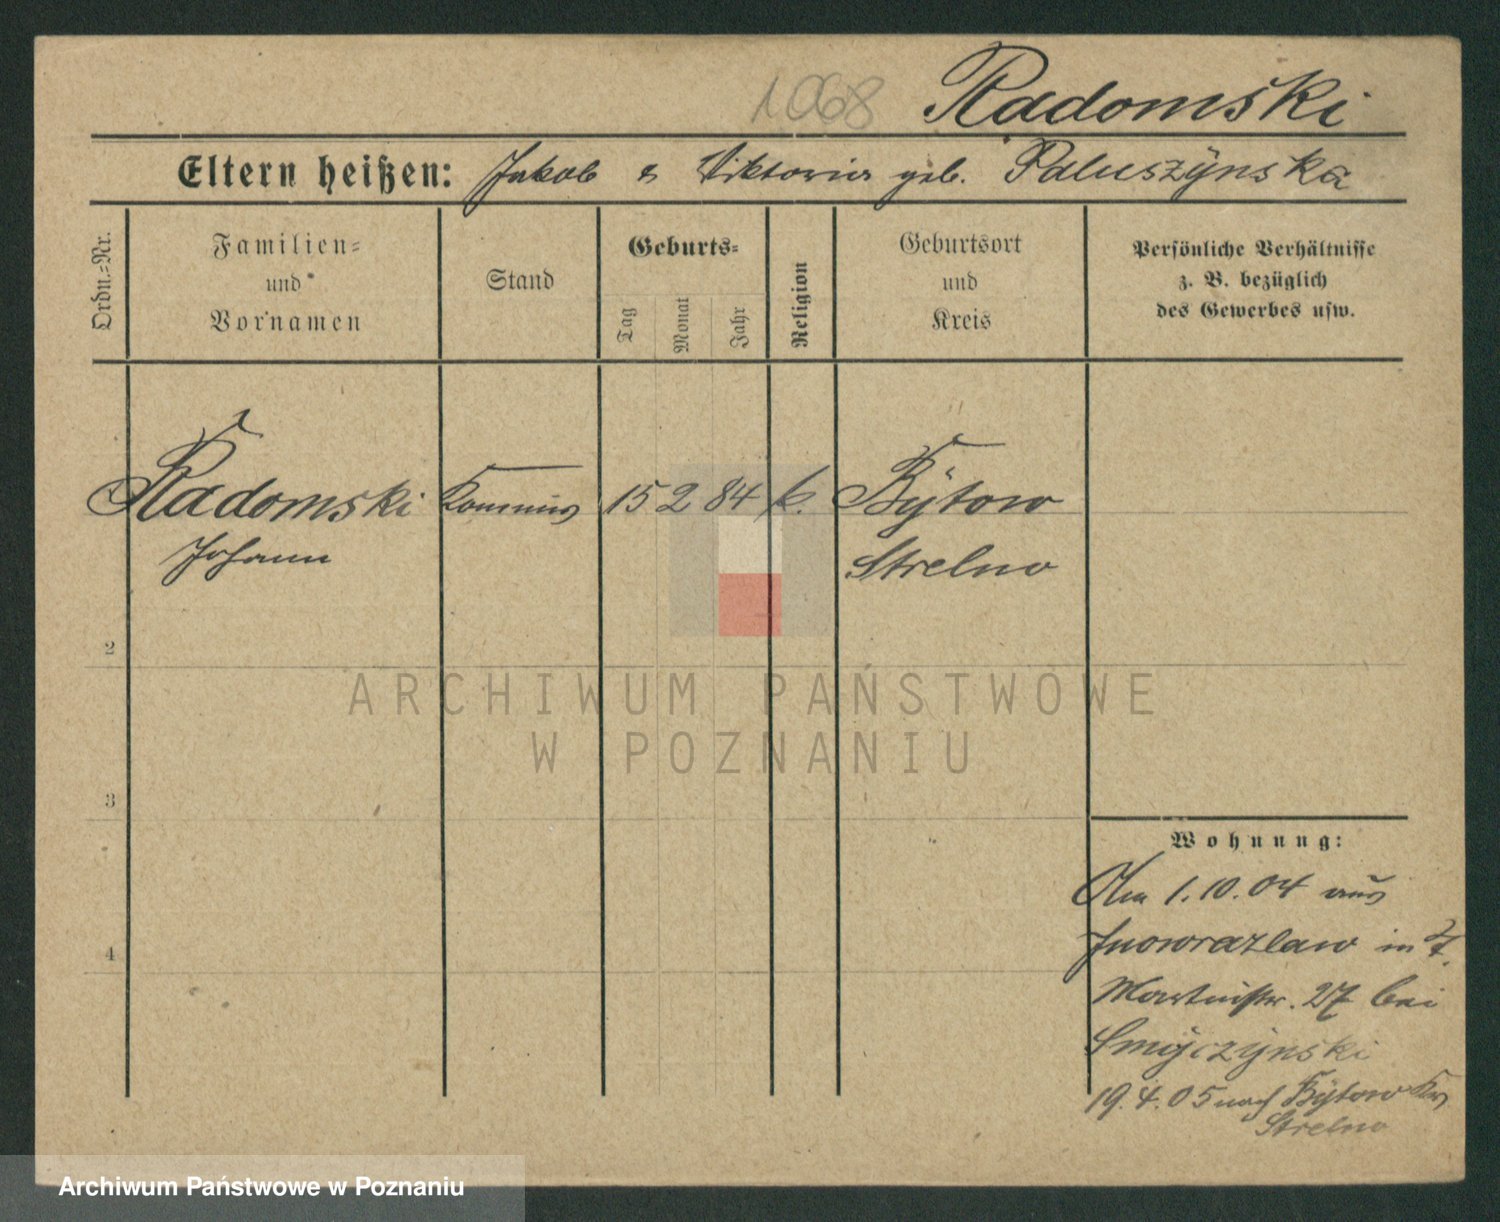 1068 Radomski
Eltern heißen: Jakob & Viktoria geb. Paluszÿnska
Ordn.-Nr.
Familien-
und
Vornamen
Stand
Geburts-
Tag
Monat
Jahr
Religion
Geburtsort
und
Kreis
Persönliche Verhältnisse
z. B. bezüglich
des Gewerbes usw.
Radomski 15 2 84 k. Bÿtow
Johann
Strelno
2
3
4
ARCHIWUM PAŃSTWOWE
W POZNANIU
Wohnung:
Am 1.10.04 aus
Inowrazlaw in
Martinstr. 27 bei
Smÿczÿnski
19.4.05 nach Bÿtow Kr
Strelno
Archiwum Państwowe w Poznaniu